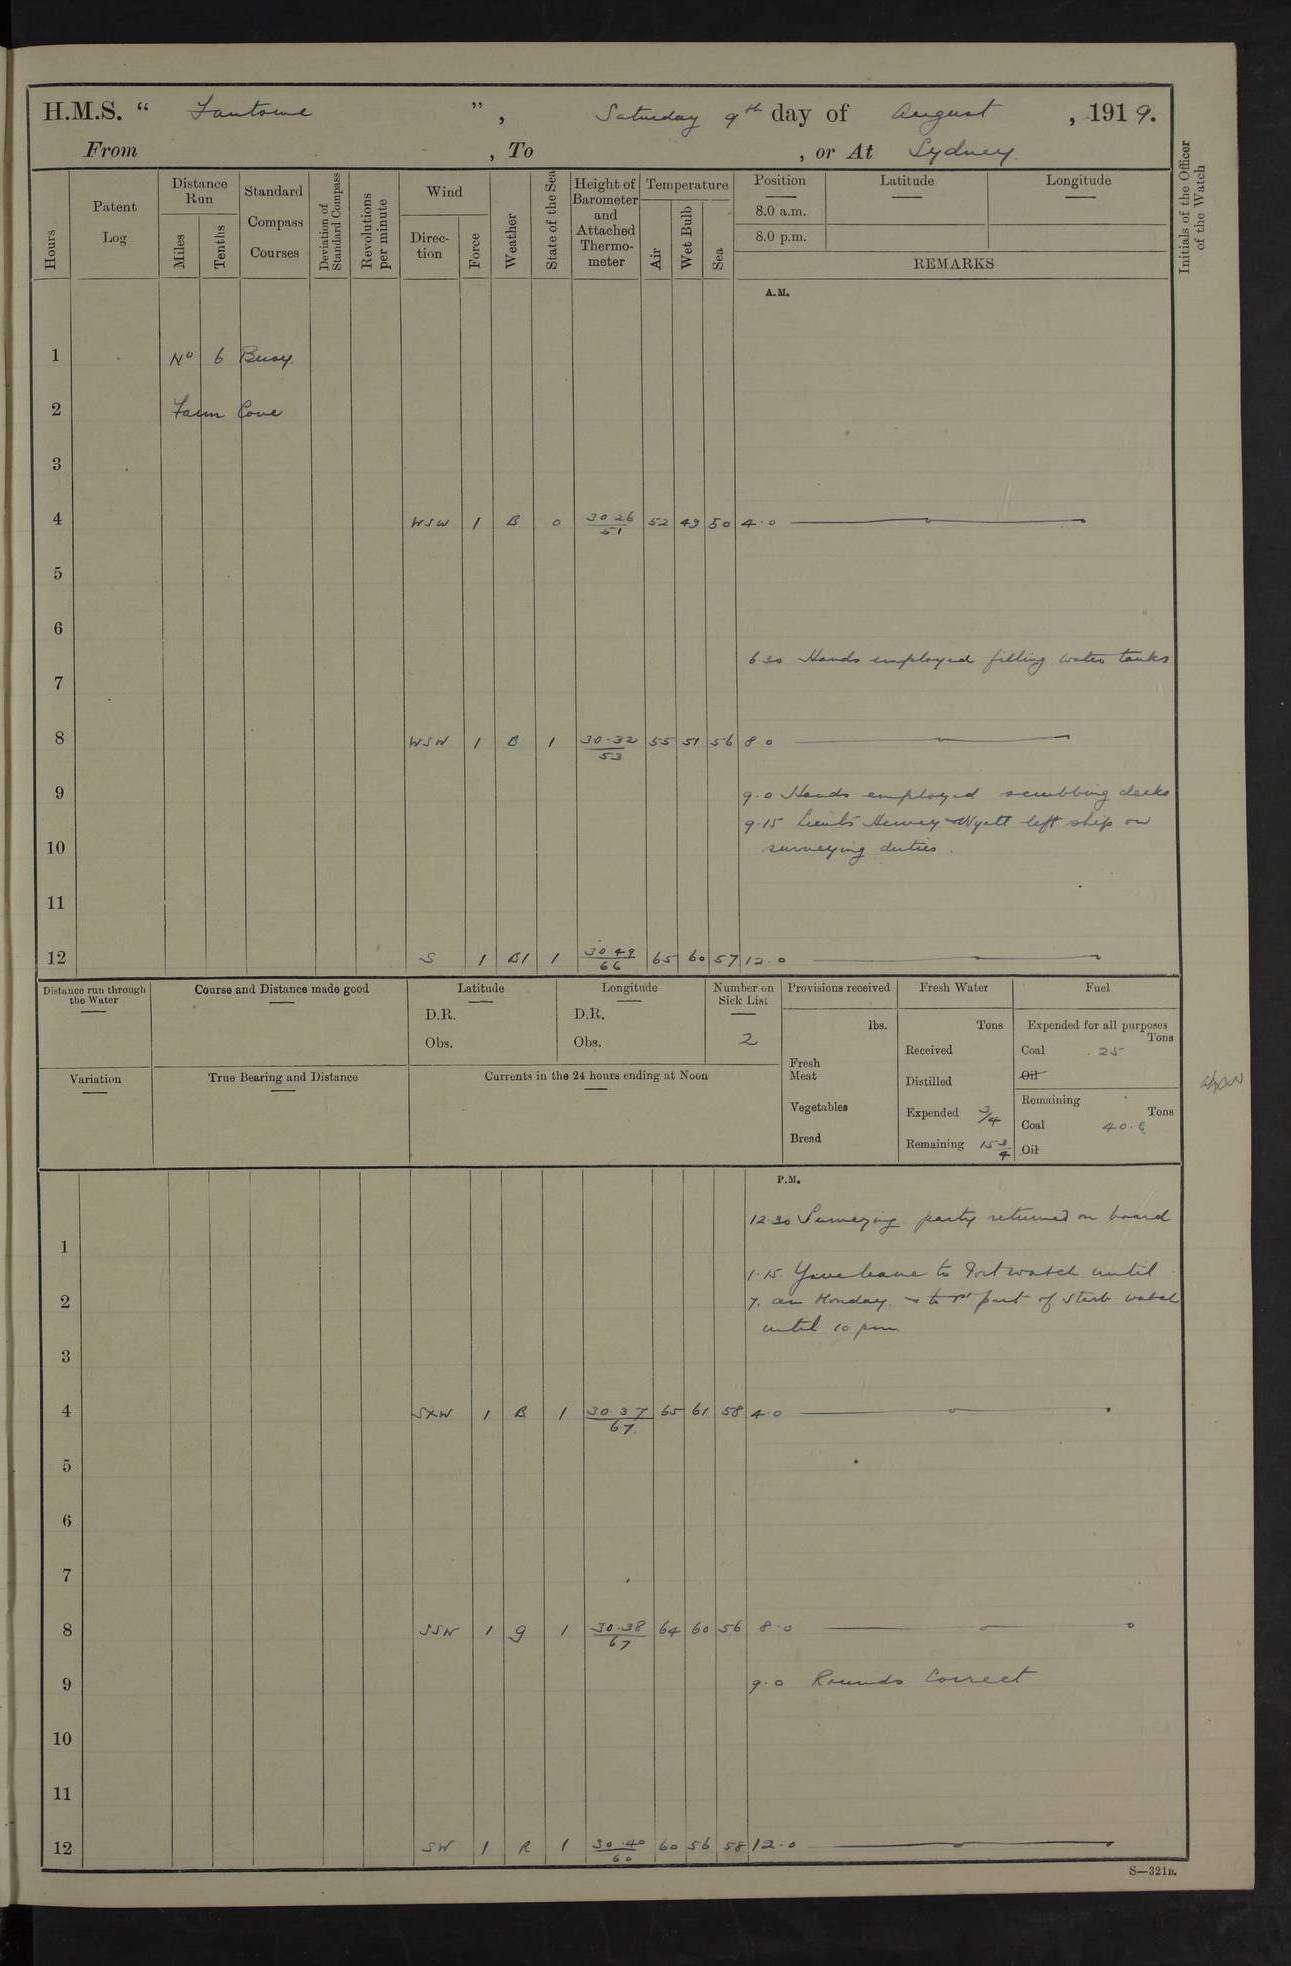 H.M.S. “ Fantome ”, Saturday 9th day of August, 1919.
From , To , or At Sydney.
Hours
Patent Log
Distance Run
Miles
Tenths
Standard Compass Courses
Deviation of Standard Compass
Revolutions per minute
Wind
Direc-tion
Force
Weather
State of the Sea
Height of Barometer and Attached Thermo-meter
Temperature
Air
Wet Bulb
Sea
Position
8.0 a.m.
8.0 p.m.
Latitude
Longitude
REMARKS
Initials of the Officer of the Watch
A.M.
1 No 6 Buoy.
2 Farm Cove
3
4 WSW 1 B 0 30.26/51 52 49 50 4.0
5
6
6 30 Hands employed filling water tanks
7
8 WSW 1 B 1 30.32/53 55 51 56 8.0
9 9.0 Hands employed scrubbing decks
9.15 Lieuts Hervey & Wyatt left ship on
10 surveying duties.
11
12 S 1 B1 1 30.49/66 65 60 57 12.0
Distance run through the Water
Course and Distance made good
Latitude
D.R.
Obs.
Longitude
D.R.
Obs.
Number on Sick List
2
Provisions received
lbs.
Fresh Meat
Vegetables
Bread
Fresh Water
Tons
Received
Distilled
Expended 3/4
Remaining 15 3/4
Fuel
Expended for all purposes
Tons
Coal .25
Oil
Remaining
Tons
Coal
Oil
Variation
True Bearing and Distance
Currents in the 24 hours ending at Noon
P.M.
12.30 Surveying party returned on board
1
1.15 Gave leave to Port watch until
2 7. am Monday. & to 1st part of Starb watch
until 10 pm.
3
4 SXW 1 B 1 30.37/67 65 61 58 4.0
5
6
7
8 SSW 1 g 1 30.38/67 64 60 56 8.0
9 9.0 Rounds Correct
10
11
12 SW 1 R 1 30.40/60 60 56 58 12.0
S—321B.